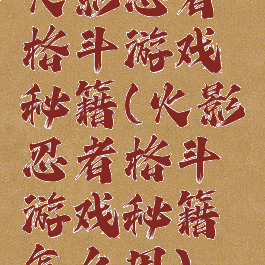 火影忍者
格斗游戏
秘籍(火影
忍者格斗
游戏秘籍
怎么用)